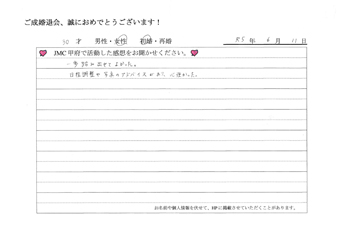 ご成婚退会、誠におめでとうございます！
30 才 男性・女性 初婚・再婚 R5 年 6 月 11 日
JMC甲府で活動した感想をお聞かせください。
一歩踏み出せてよかった。
日程調整や写真のアドバイスがあり、心強かった。
お名前や個人情報を伏せて、HPに掲載させていただくことがあります。